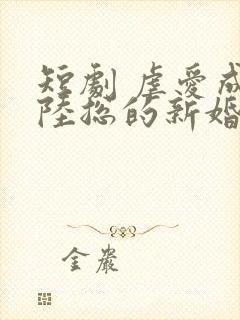 短劇 虐愛成
陸總的新婚
金嚴